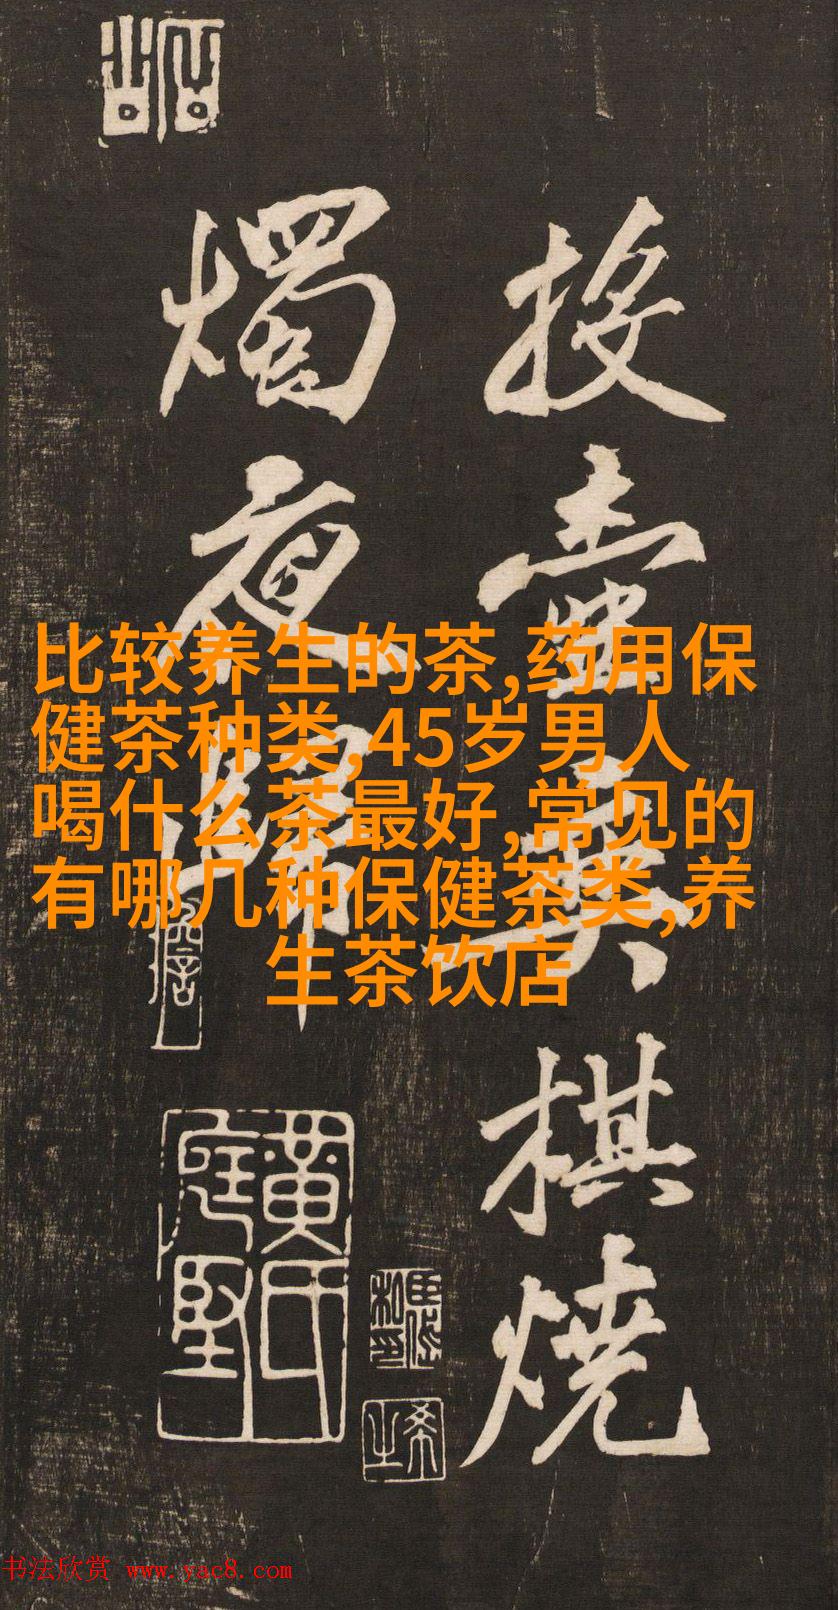 投壶奕棋烧
烛夜归
比较养生的茶,药用保
健茶种类,45岁男人
喝什么茶最好,常见的
有哪几种保健茶类,养
生茶饮店
黄氏
庭坚
书法欣赏 www.yac8.com